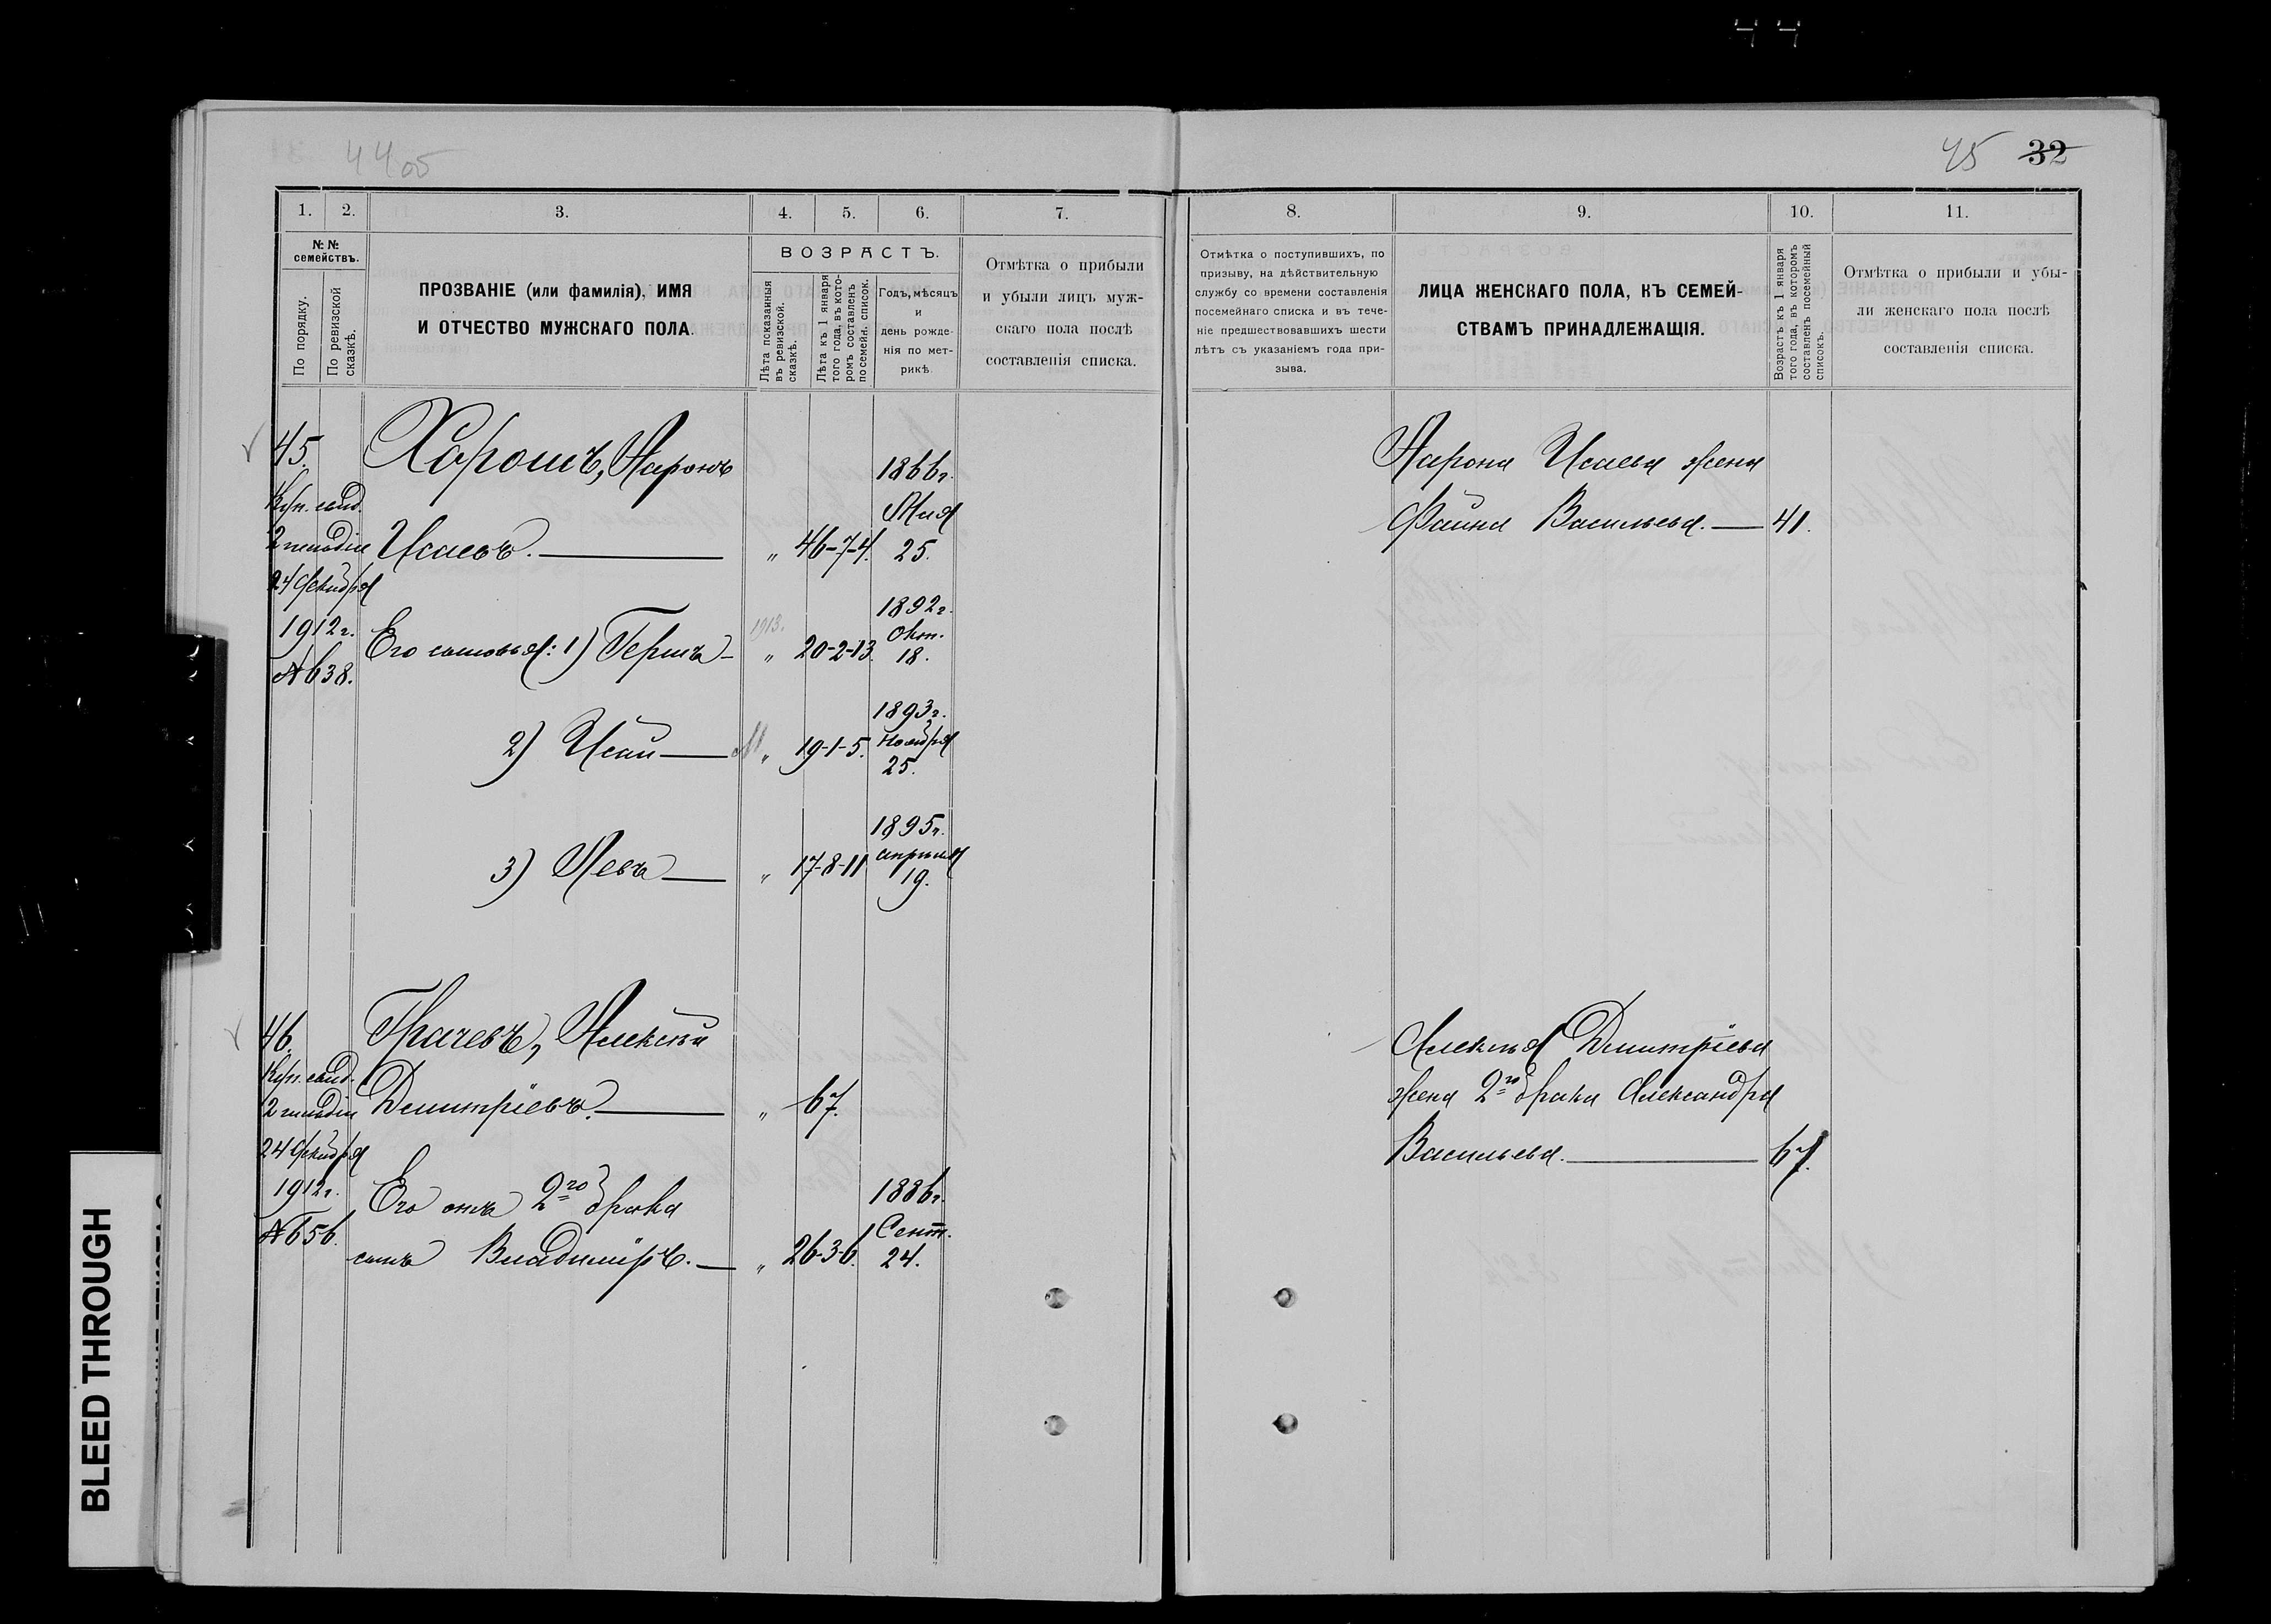 44
44 об
45 32
1. 2. 3. 4. 5. 6. 7.
№ №
семействъ.
По порядку.
По ревизской
сказкѣ.
ПРОЗВАНІЕ (или фамилія), ИМЯ
И ОТЧЕСТВО МУЖСКАГО ПОЛА.
ВОЗРАСТЪ.
Лѣта показанныя
въ ревизской.
сказкѣ.
Лѣта къ 1 января
того года, въ кото-
ромъ составленъ
посемейн. список.
Годъ, мѣсяцъ
и
день рожде-
нія по мет-
рикѣ
Отмѣтка о прибыли
и убыли лицъ муж-
скаго пола послѣ
составленія списка.
45.
Куп. свид.
2 гильдіи
24 Декабря
1912 г.
№ 638.
Харошъ, Аронъ
Исаевъ. „ 46-7-4.
1866 г.
Мая
25.
Его сыновья: 1) Гершъ 1913. „ 20-2-13.
1892 г.
Окт.
18.
2) Исай „ 19-1-5.
1893 г.
Ноября
25.
3) Левъ „ 17-8-11
1895 г.
апрѣля
19.
46.
Куп. свид.
2 гильдіи
24 Декабря
1912 г.
№ 656.
Ткачевъ, Алексѣй
Дмитріевъ. „ 67.
Его отъ 2го брака
сынъ Владиміръ. „ 26-3-6.
1886 г.
Сент.
24.
8. 9. 10. 11.
Отмѣтка о поступившихъ, по
призыву, на дѣйствительную
службу со времени составленія
посемейнаго списка и въ тече-
ніе предшествовавшихъ шести
лѣтъ съ указаніемъ года при-
зыва.
ЛИЦА ЖЕНСКАГО ПОЛА, КЪ СЕМЕЙ-
СТВАМЪ ПРИНАДЛЕЖАЩІЯ.
Возрастъ къ 1 января
того года, въ которомъ
составленъ посемейный
списокъ.
Отмѣтка о прибыли и убы-
ли женскаго пола послѣ
составленія списка.
Арона Исаева жена
Фаина Васильева. 41.
Алексѣя Дмитріева
жена 2го брака Александра
Васильева. 67.
BLEED THROUGH